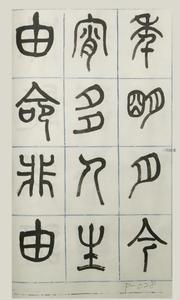 年明月今
宵多人生
由命非由